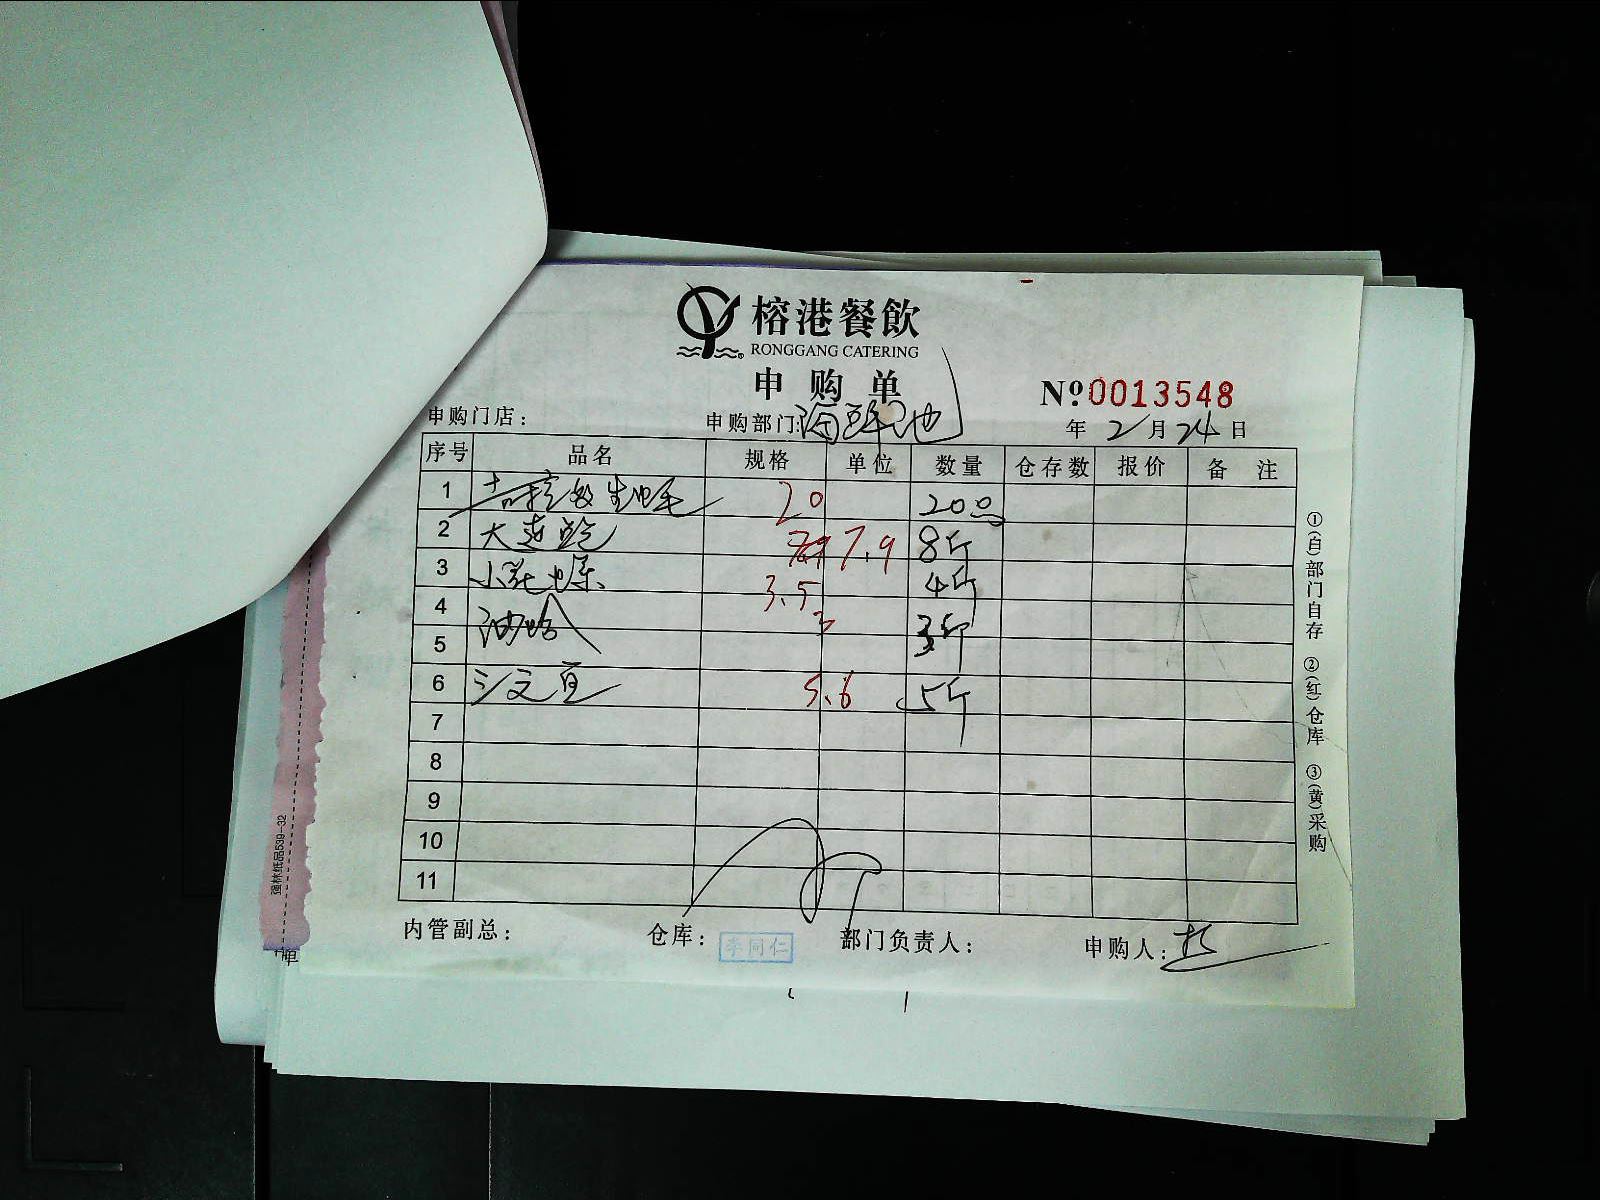 榕港餐飲
RONGGANG CATERING
申购单
Nº0013548
申购门店： 申购部门：海鲜池 年 2月24日
序号 品名 规格 单位 数量 仓存数 报价 备注
1 生蚝 20 20
2 大连鲍 7.9 8斤
3 小花螺 3.5 4斤
4 油蛤 3 3斤
5
6 5.6 5斤
7
8
9
10
11
内管副总： 仓库： 李同仁 部门负责人： 申购人：
①(自)部门自存 ②(红)仓库 ③(黄)采购
强林纸品539-32
单